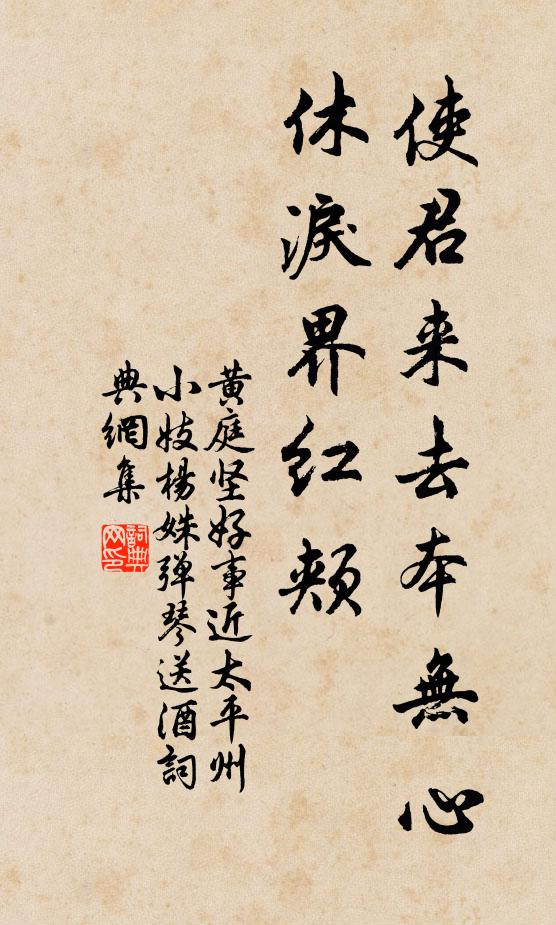 使君来去本無心
休淚界紅頰
黃庭坚好事近太平州
小妓楊姝弹琴送酒詞
典網集
詞典
网印